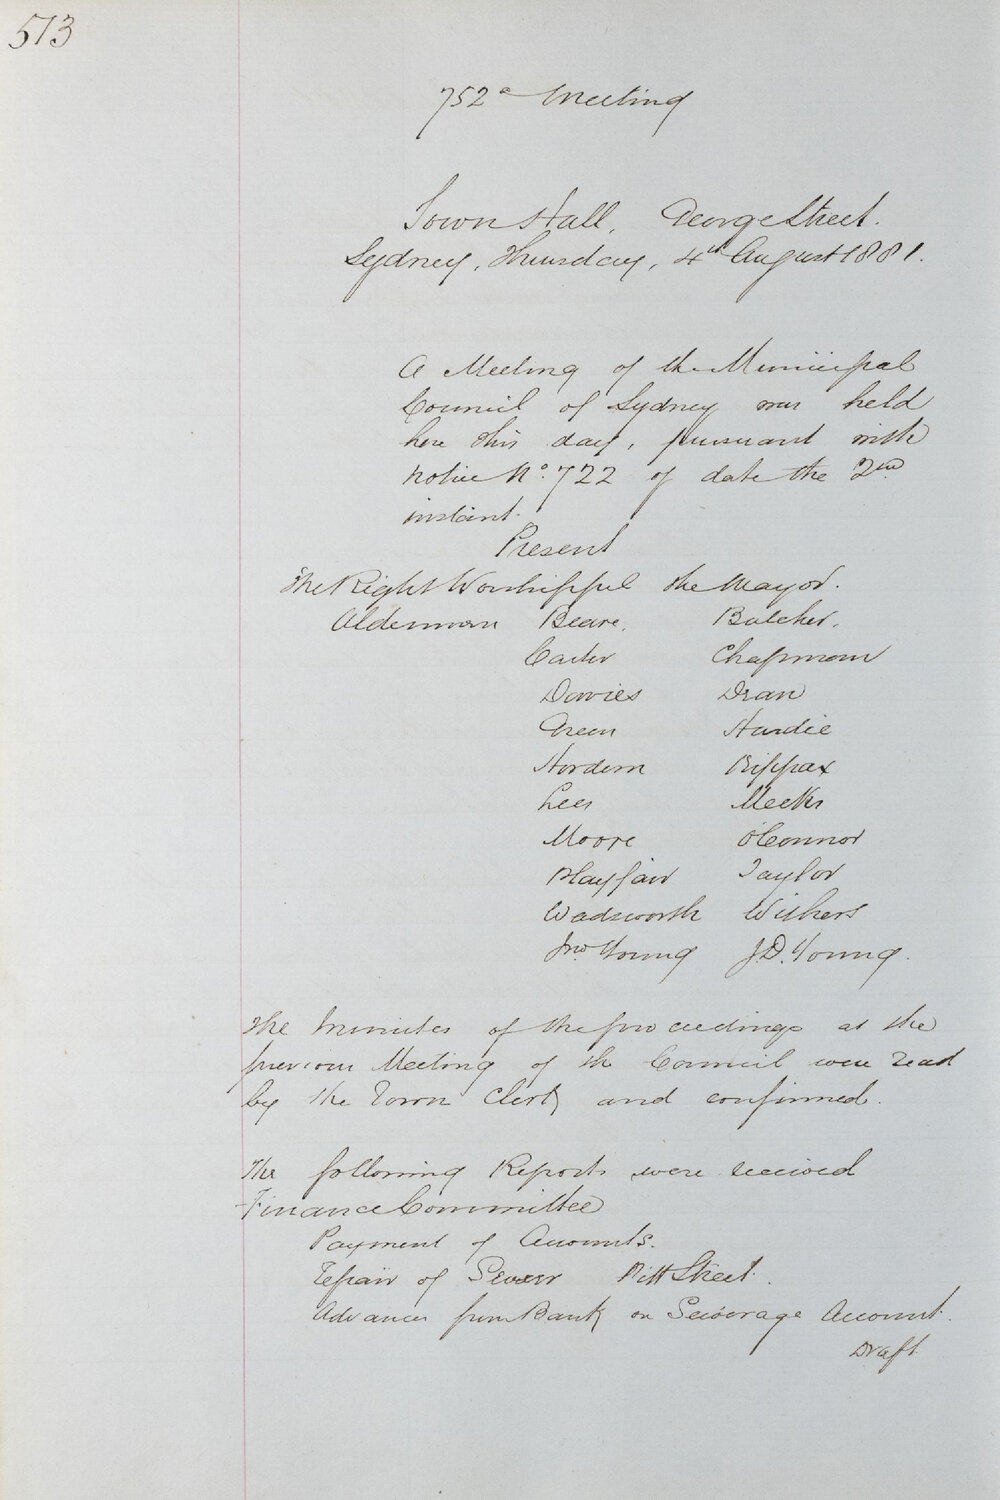 513
752d Meeting
Town Hall, George Street.
Sydney, Thursday, 4th August 1881.
A Meeting of the Municipal
Council of Sydney was held
here this day, pursuant with
notice No. 722 of date the 2nd
instant.
Present
The Right Worshipful the Mayor.
Alderman Beare, Butcher,
Carter Chapman
Davies Dean
Green Hardie
Hordern Kippax
Lees Meeks
Moore O'Connor
Playfair Taylor
Wadsworth Withers
Jno Young J.D. Young.
The Minutes of the proceedings at the
previous Meeting of the Council were read
by the Town Clerk and confirmed.
The following Reports were received
Finance Committee
Payment of Accounts.
Repair of Sewer Pitt Street.
Advances from Bank on Sewerage Account.
Draft